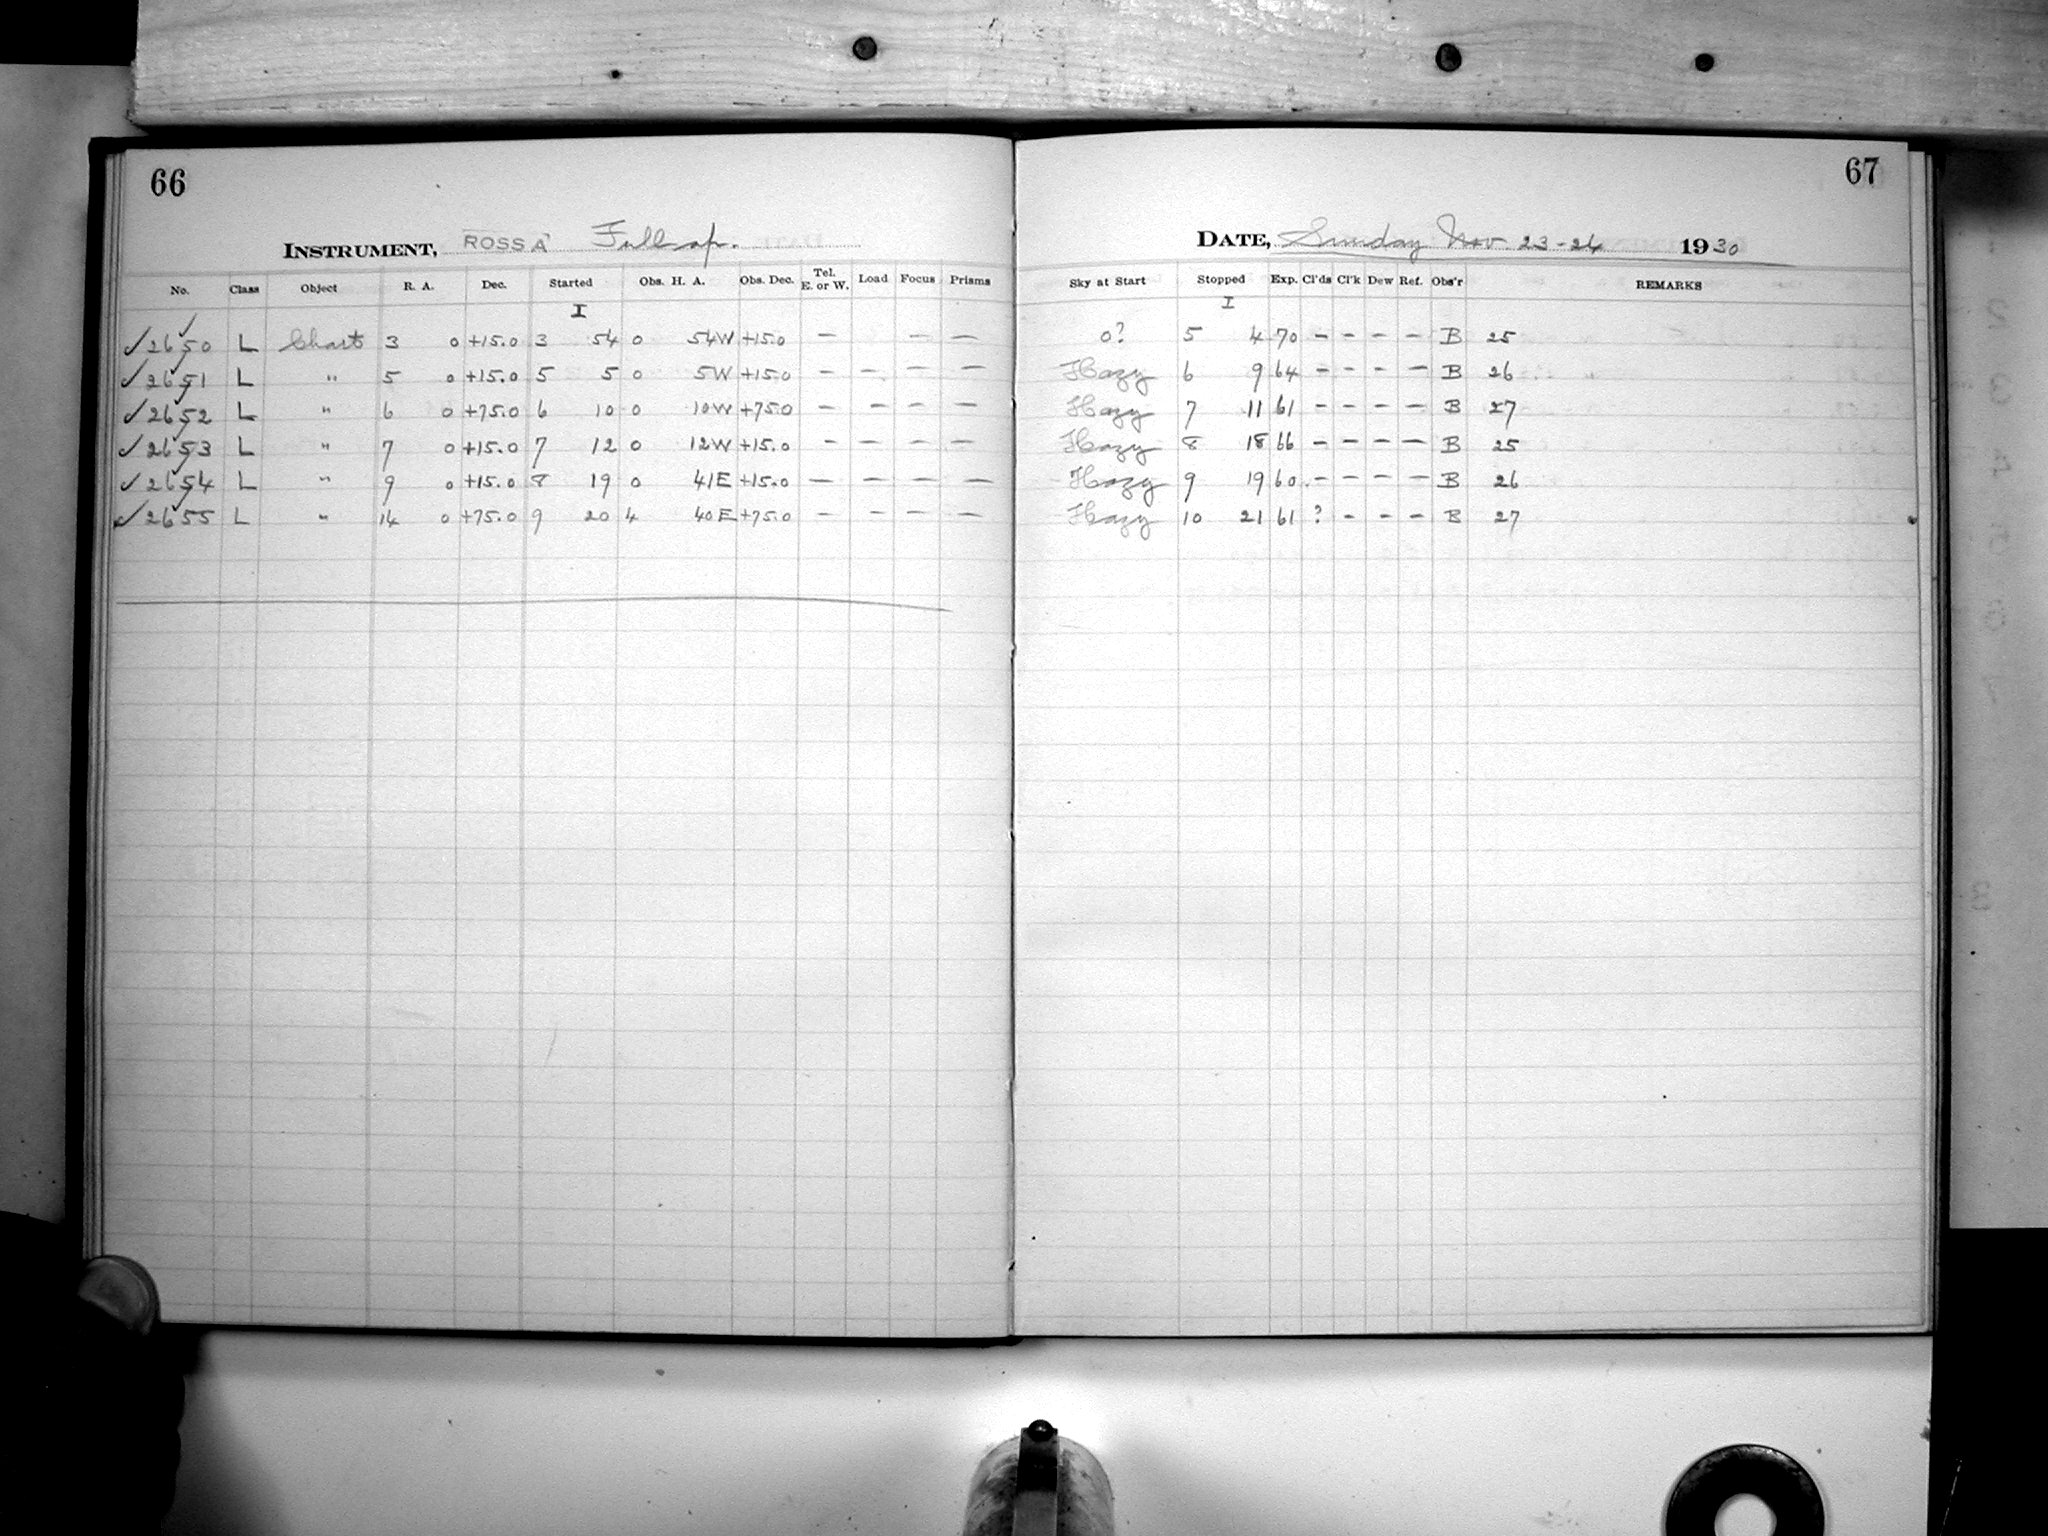 66
INSTRUMENT, ROSS A Full ap.
No. Class Object R. A. Dec. Started Obs. H. A. Obs. Dec. Tel. E. or W. Load Focus Prisms
I
✓2650 L Chart 3 0 +15.0 3 54 0 54W +15.0 — — —
✓2651 L " 5 0 +15.0 5 5 0 5W +15.0 — — — —
✓2652 L " 6 0 +75.0 6 10 0 10W +75.0 — — — —
✓2653 L " 7 0 +15.0 7 12 0 12W +15.0 — — — —
✓2654 L " 9 0 +15.0 8 19 0 41E +15.0 — — — —
✓2655 L " 14 0 +75.0 9 20 4 40E +75.0 — — — —
67
DATE, Sunday Nov 23-24 1930
Sky at Start Stopped Exp. Cl'ds Cl'k Dew Ref. Obs'r REMARKS
I
0? 5 4 70 — — — — B 25
Hazy 6 9 64 — — — — B 26
Hazy 7 11 61 — — — — B 27
Hazy 8 18 66 — — — — B 25
Hazy 9 19 60 — — — — B 26
Hazy 10 21 61 ? — — — B 27